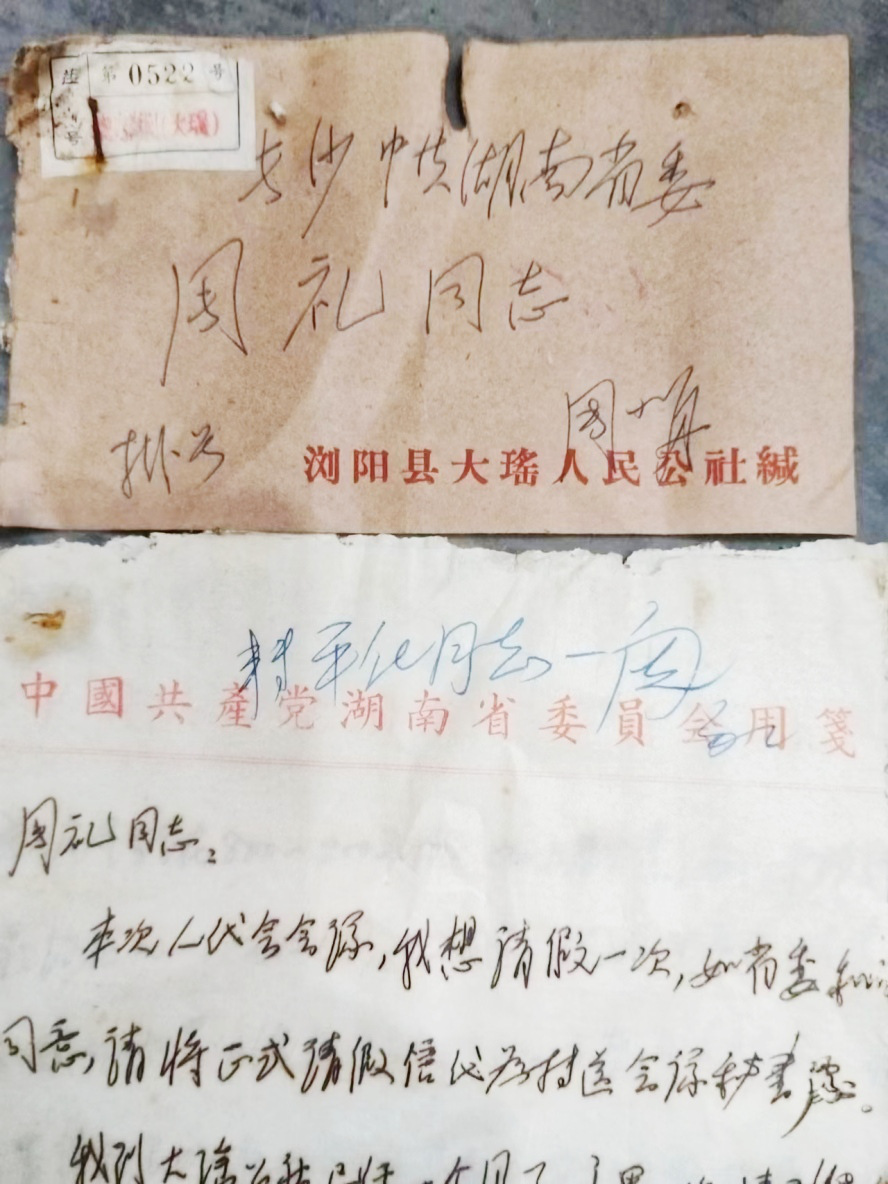 挂 第 0522 号
号 (大瑶)
长沙中共湖南省委
周礼同志
挂号
浏阳县大瑶人民公社缄
平化同志一阅
中國共產党湖南省委員会用箋
周礼同志：
本次人代会会议，我想请假一次，如省委和
同意，请将正式请假信代为转送会议秘书处。
我到大瑶公社已经一个月了